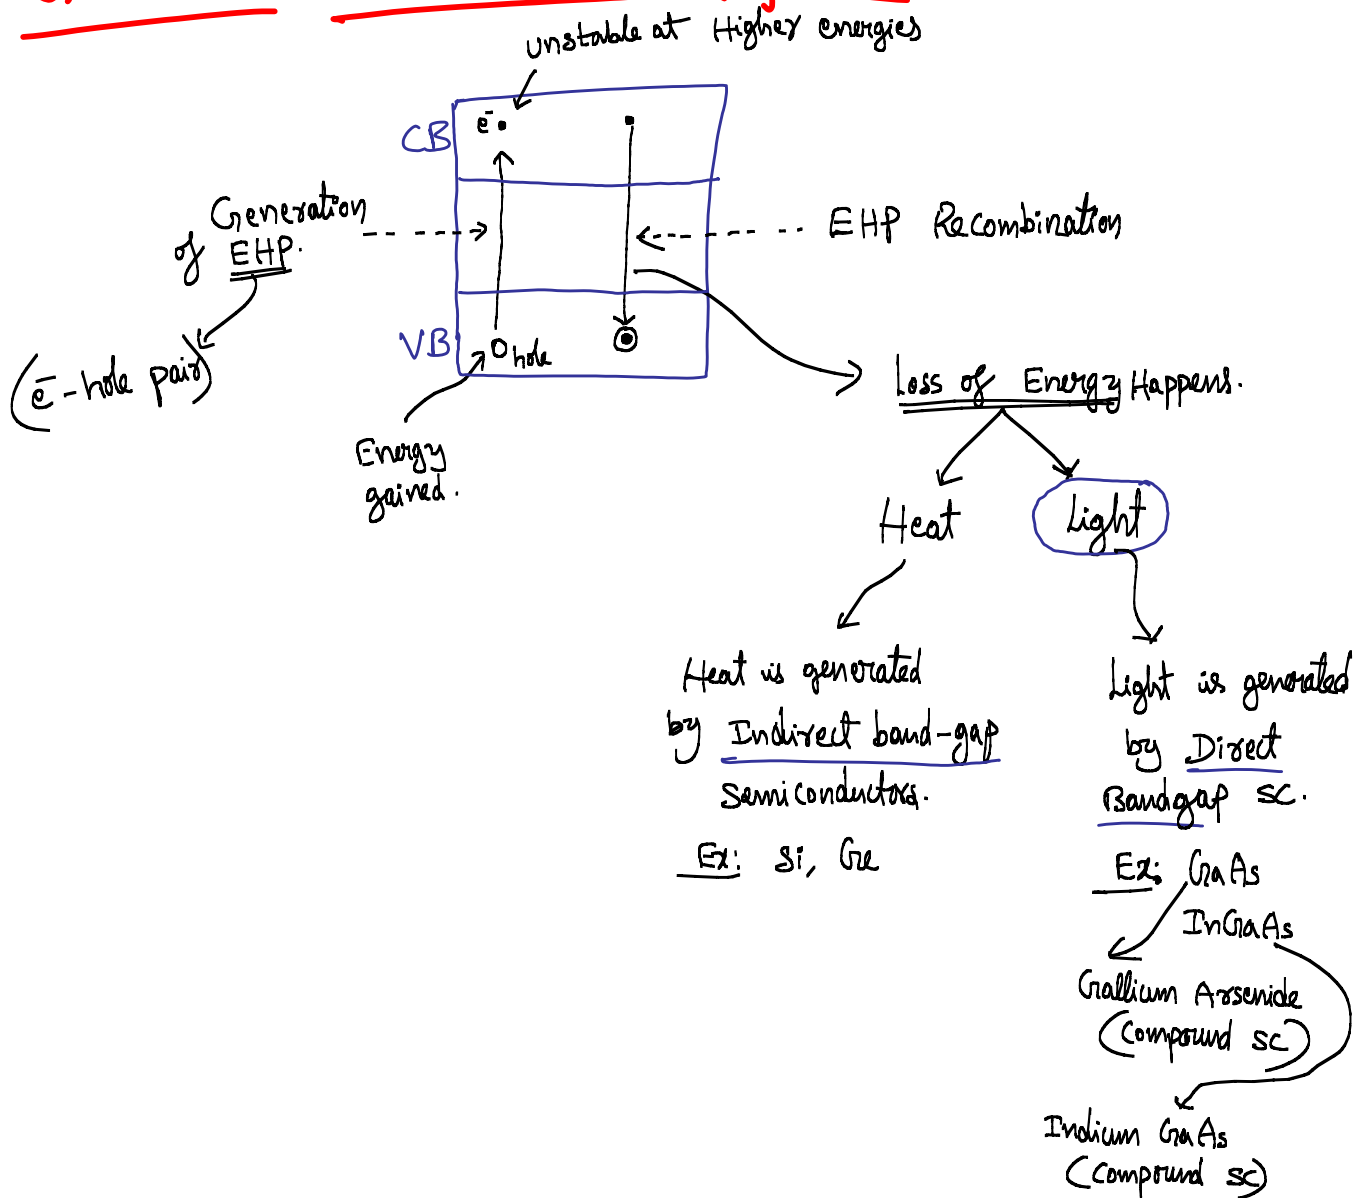 unstable at Higher energies
CB
e⁻
Generation
of EHP.
EHP Recombination
VB
hole
(e⁻-hole pair)
Loss of Energy Happens.
Energy
gained.
Heat
Light
Heat is generated
by Indirect band-gap
Semiconductors.
Ex: Si, Ge
Light is generated
by Direct
Bandgap SC.
Ex: GaAs
InGaAs
Gallium Arsenide
(Compound SC)
Indium GaAs
(Compound SC)